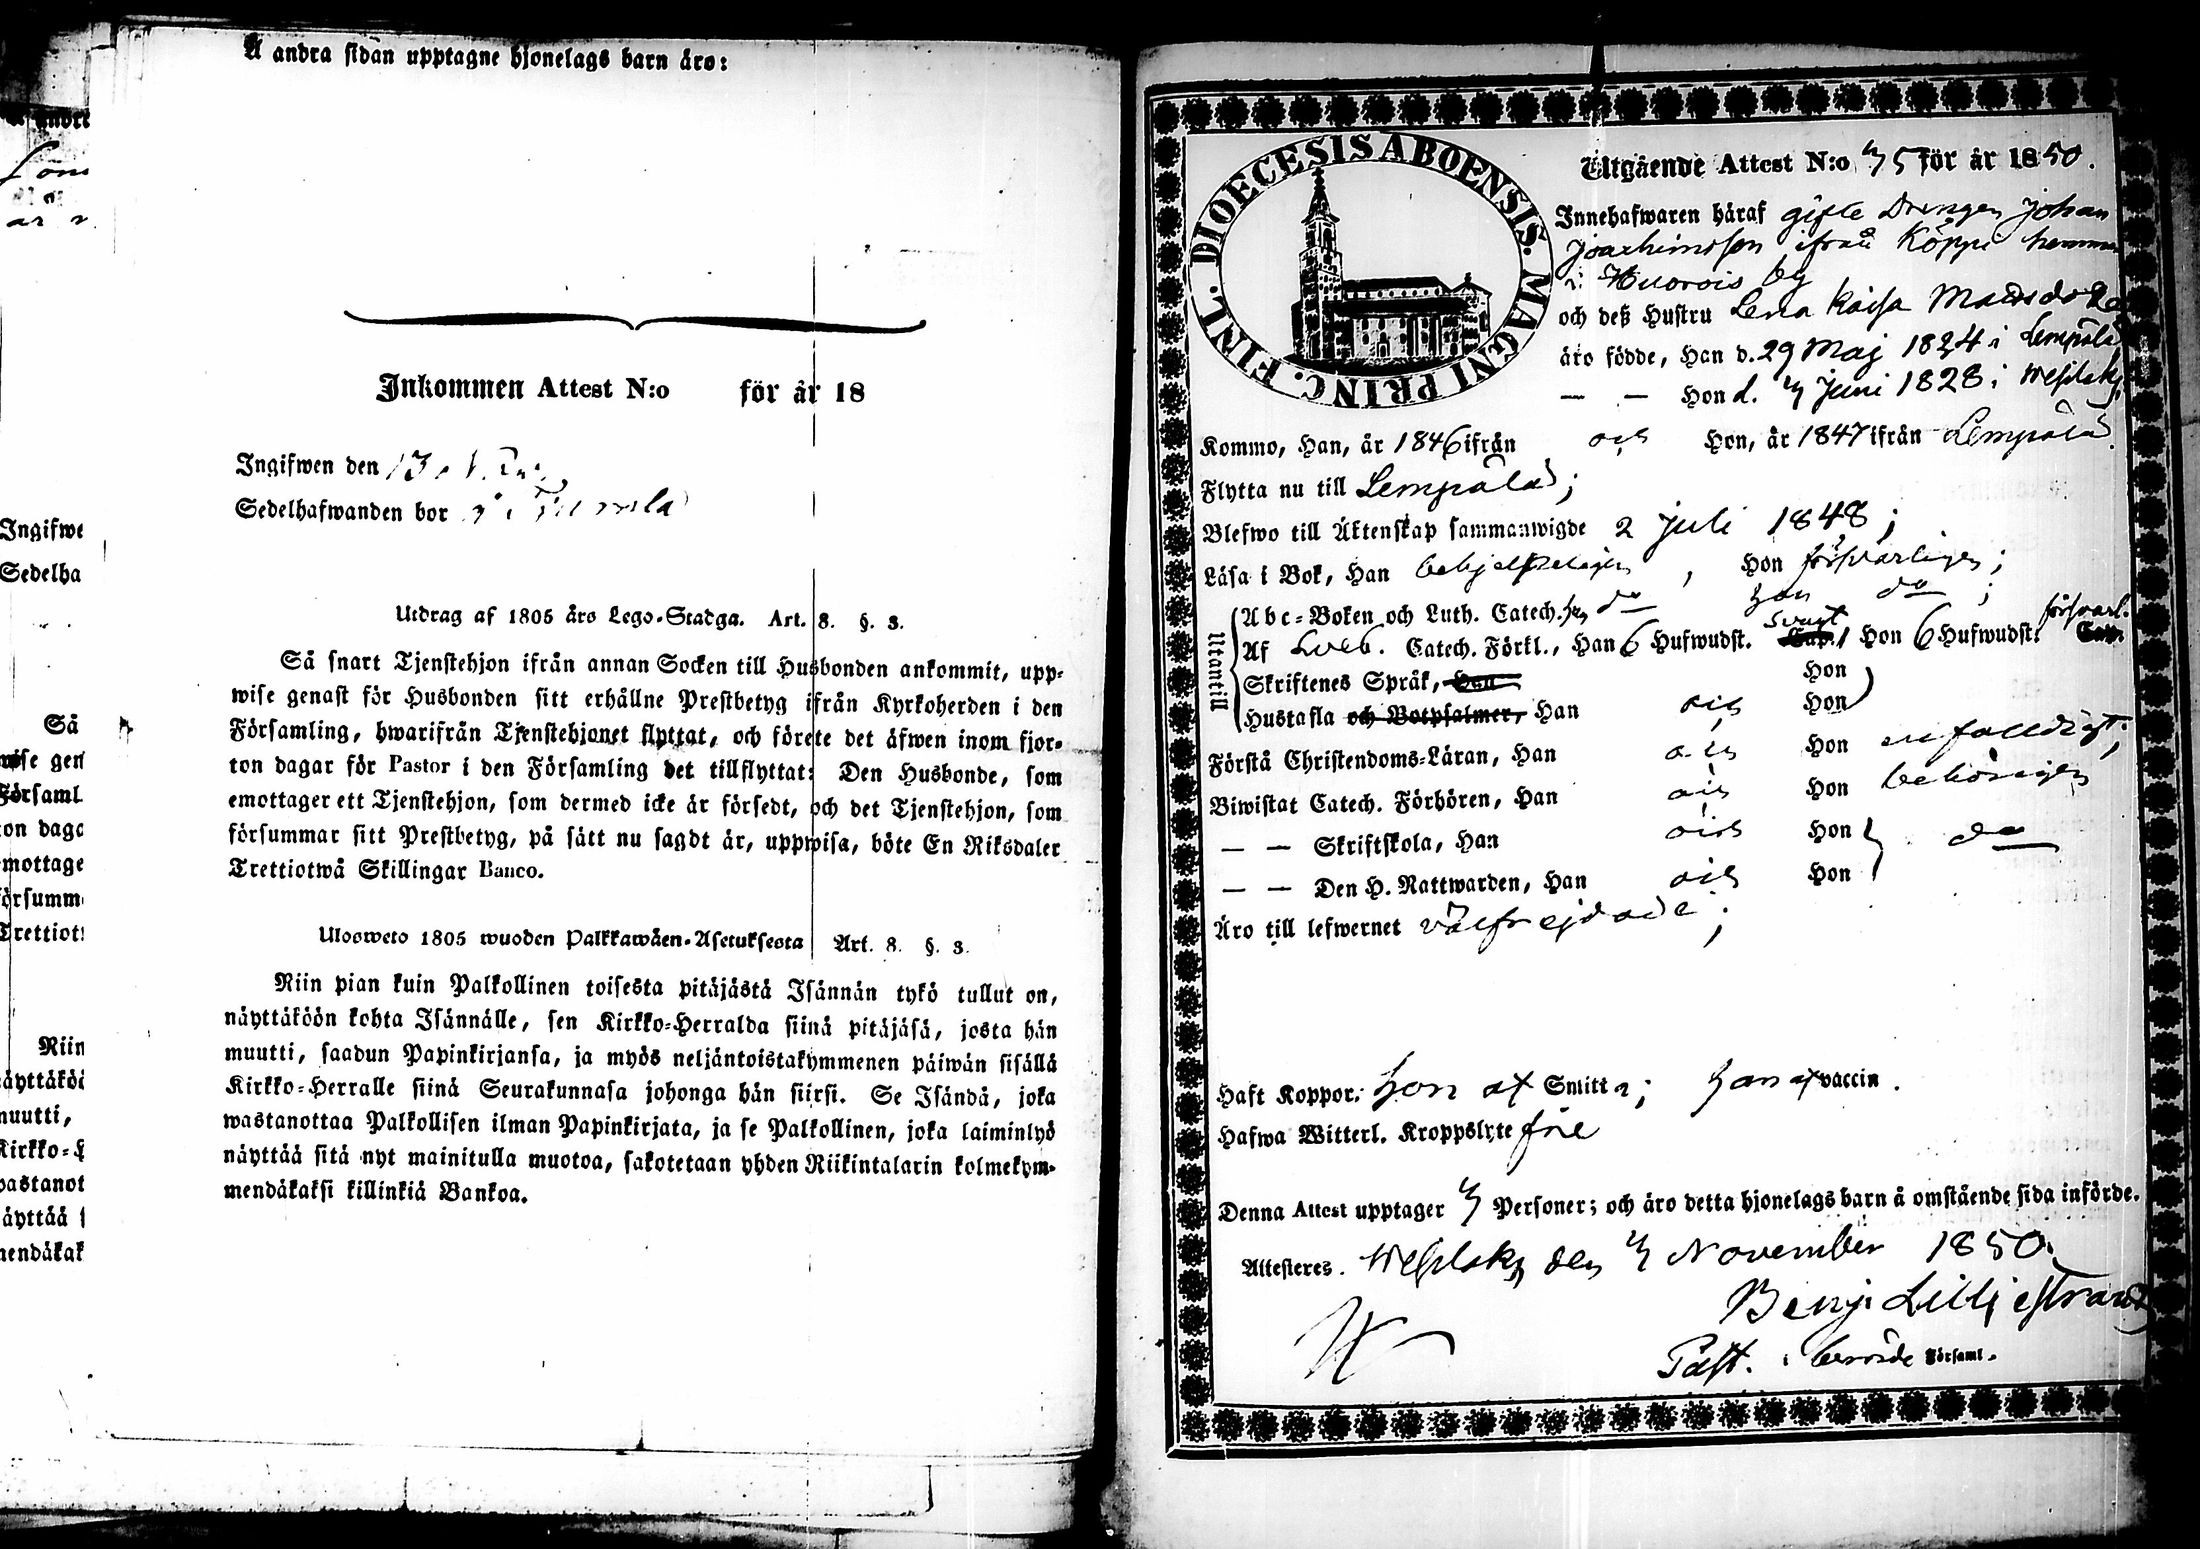 Å andra sidan upptagne hjonelags barn äro:
Inkommen Attest N:o för år 18
Ingifwen den 13
Sedelhafwanden bor
Utdrag af 1805 års Lego-Stadga. Art. 8. §. 3.
Så snart Tjenstehjon ifrån annan Socken till Husbonden ankommit, upp-
wise genast för Husbonden sitt erhållne Prestbetyg ifrån Kyrkoherden i den
Församling, hwarifrån Tjenstehjonet flyttat, och förete det äfwen inom fjor-
ton dagar för Pastor i den Församling det tillflyttat: Den Husbonde, som
emottager ett Tjenstehjon, som dermed icke är försedt, och det Tjenstehjon, som
försummar sitt Prestbetyg, på sätt nu sagdt är, uppwisa, böte En Riksdaler
Trettiotwå Skillingar Banco.
Ulosweto 1805 wuoden Palkkawäen-Asetuksesta Art. 8. §. 3.
Niin pian kuin Palkollinen toisesta pitäjästä Isännän tykö tullut on,
näyttäköön kohta Isännälle, sen Kirkko-Herralda siinä pitäjäsä, josta hän
muutti, saadun Papinkirjansa, ja myös neljäntoistakymmenen päiwän sisällä
Kirkko-Herralle siinä Seurakunnasa johonga hän siirsi. Se Isändä, joka
wastanottaa Palkollisen ilman Papinkirjata, ja se Palkollinen, joka laiminlyö
näyttää sitä nyt mainitulla muotoa, sakotetaan yhden Riikintalarin kolmekym-
mendäkaksi killinkiä Bankoa.
DIOECESIS ABOENSIS. MAGNI PRINC. FINL.
Utgående Attest N:o 75 för år 1850.
Innehafwaren häraf gifte Drengen Johan
Joachimsson ifrån Köppi hemm
i Huorois by
och deß Hustru Lena Kaisa Madsdo
äro födde, Han d. 29 Maj 1824 i Lempälä
— — Hon d. 7 Juni 1828 i Wesilaks
Kommo, Han, år 1846 ifrån och Hon, år 1847 ifrån Lempälä
Flytta nu till Lempälä;
Blefwo till Äktenskap sammanwigde 2 Juli 1848;
Läsa i Bok, Han behjelpeligen, Hon förswarligen;
Utantill
Abc-Boken och Luth. Catech. han do hon do;
Af Sveb. Catech. Förkl., Han 6 Hufwudst. svagt Cap. Hon 6 Hufwudst. förswarl. Cap.
Skriftenes Språk, Han Hon
Hustafla och Botpsalmer, Han och Hon
Förstå Christendoms-Läran, Han och Hon enfaldigt;
Biwistat Catech. Förhören, Han och Hon behörigen
— — Skriftskola, Han och Hon do
— — Den H. Nattwarden, Han och Hon
Äro till lefwernet välfrejdade;
Haft Koppor: Hon af Smitta; han af vaccin.
Hafwa Witterl. Kroppslyte frie
Denna Attest upptager Personer; och äro detta hjonelags barn å omstående sida införde.
Attesteres. Wesilaks den 7 November 1850.
Benj. Lilljestrand
Past. i berörde Församl.
Ingifwe
Sedelha
Så
wise gen
Församl
ton daga
emottage
försumm
Trettiot
Niin
näyttäköö
muutti,
Kirkko-H
wastanot
näyttää s
mendäkak